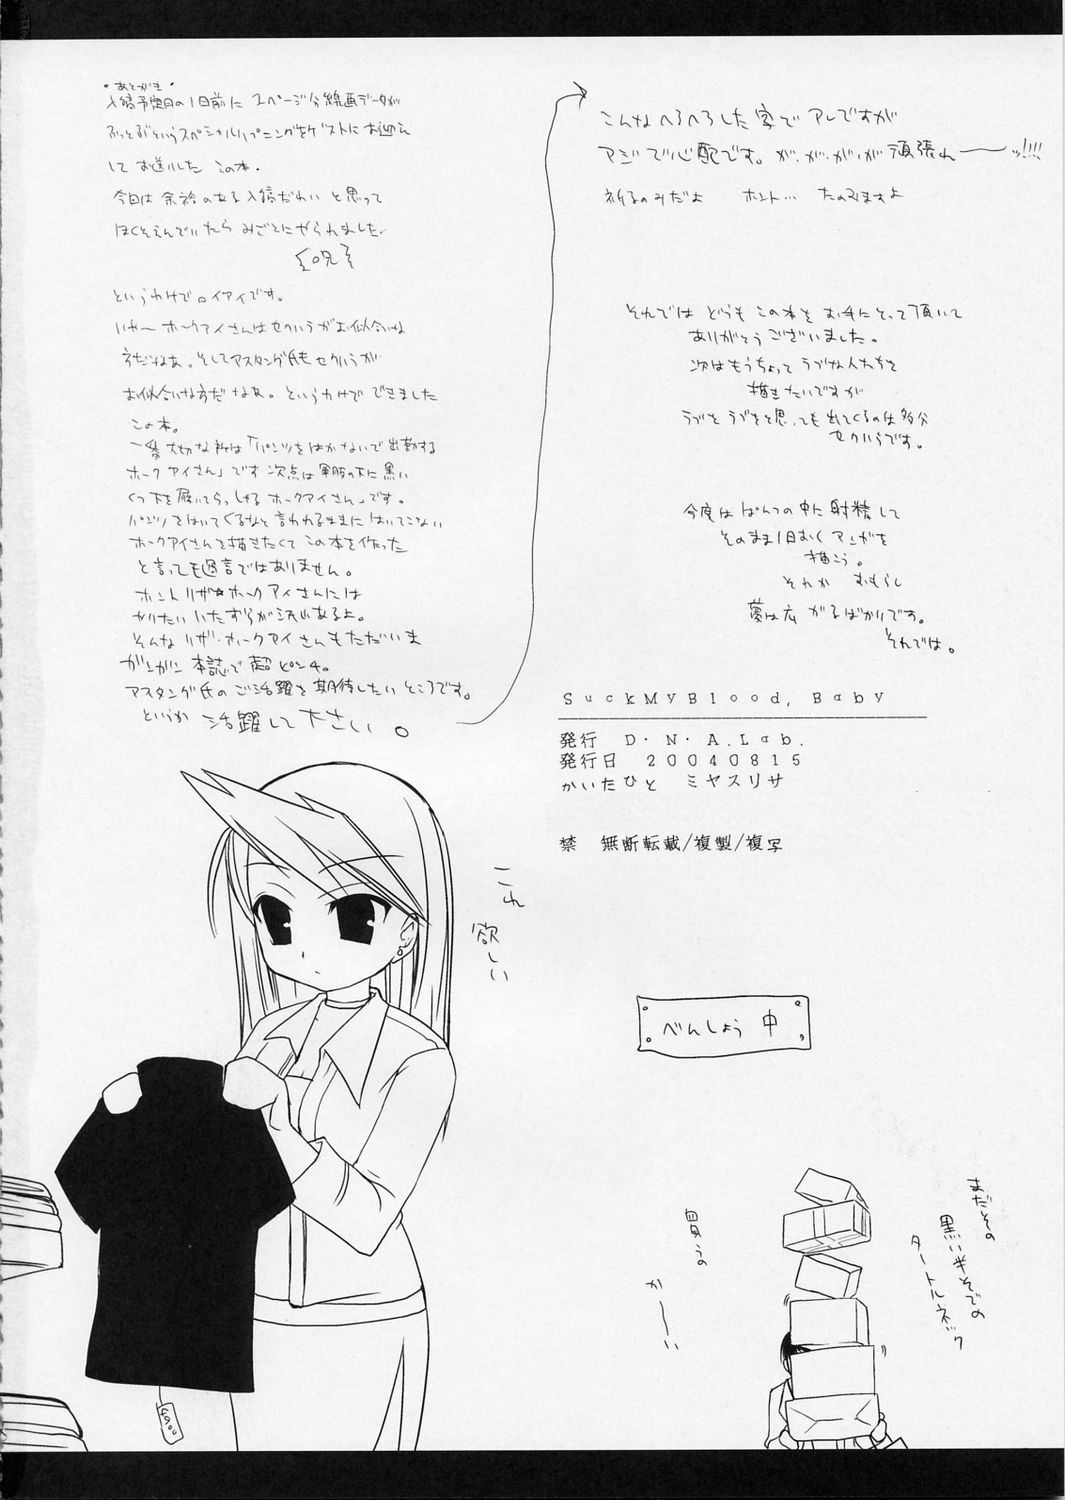 ・あとがき・
入稿予定日の1日前に 1ページ分線画データが
ぶっとぶというスペシャルハプニングをゲストにお迎え
して お送りした この本。
今日は 余裕のある入稿だわい と思って
ほくそえんでいたら みごとにやられました
というわけでロイアイです。
いやー ホークアイさんはセクハラがお似合いな
方だねぇ。そしてアスタング氏もセクハラが
お似合いな方だ なぁ。というわけで できました
この本。
一番大切な所は「パンツをはかないで出勤する
ホークアイさん」です 次点は軍服の下に黒い
くつ下を履いてらっしゃるホークアイさん」です。
パンツをはいてくるなと言われるままに はいてこない
ホークアイさんを描きたくて この本を作った
と言っても過言ではありません。
ホント リザ★ホークアイさんには
やりたい いたずらが沢山あるよ。
そんな リザ・ホークアイさんもただいま
ガンガン 本誌で 超ピンチ。
アスタング氏の ご活躍を期待したい ところです。
というか 活躍して下さい。
こんな へろへろした 字で アレですが
マジで心配です。が、が、が、が 頑張れーーッ!!!!
祈るのみだよ ホント… たのみますよ
それでは どうも この本を お手にとって頂いて
ありがとう ございました。
次はもうちょって ラブな人たちを
描きたいですが
ラブを ラブをと思っても 出てくるのは多分
セクハラです。
今度は ぱんつの中に射精して
そのまま1日おく マンガを
描こう。
それか おもらし
夢は広 がるばかりです。
それでは。
SuckMyBlood, Baby
発行 D・N・A.Lab.
発行日 20040815
かいたひと ミヤスリサ
禁 無断転載/複製/複写
これ
欲しい
べんしょう 中
まだその
黒い半そでの
タートルネック
買うの
かーーい